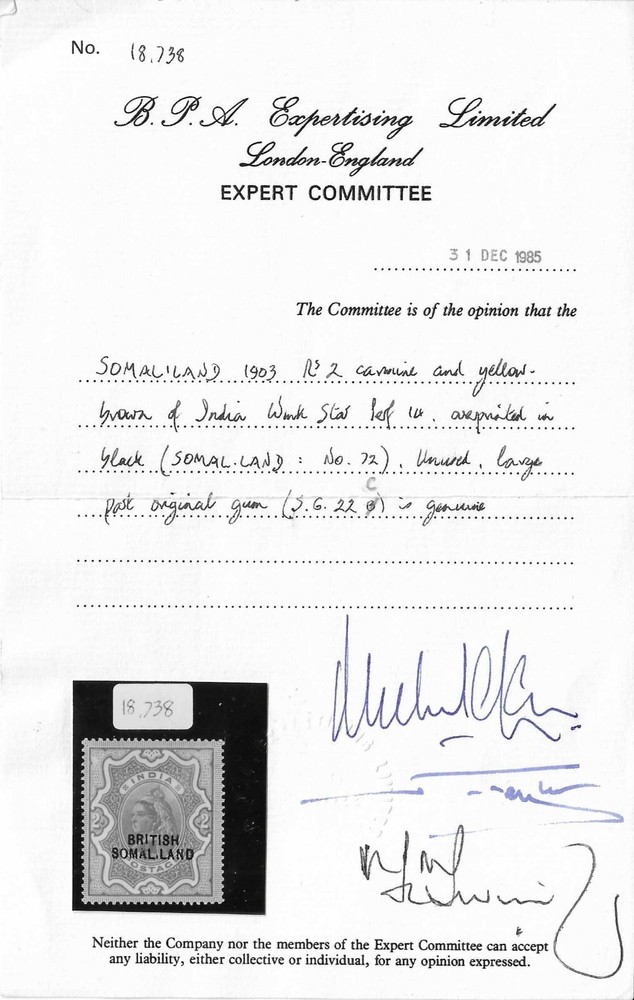 No. 18,738
B. P. A. Expertising Limited
London-England
EXPERT COMMITTEE
31 DEC 1985
The Committee is of the opinion that the
SOMALILAND 1903 Rs 2 carmine and yellow-
brown of India Wmk Star Perf 14. overprinted in
black (SOMAL.LAND : No. 72). Unused, large
part original gum (S.G. 22 c) is genuine
18,738
INDIA
BRITISH
SOMAL.LAND
POSTAGE
Neither the Company nor the members of the Expert Committee can accept
any liability, either collective or individual, for any opinion expressed.